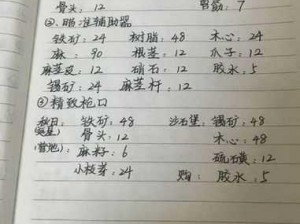 骨头: 12 弯筋: 7
③. 瞄准辅助器
铁矿: 24 树脂: 48 木心: 24
麻: 90 根茎: 12 爪子: 12
麻茎皮: 12 硝石: 12 胶水: 5
锡矿: 24 麻茎杆: 12
④ 精致枪口
秋日: 铁矿: 48 沙石堡: 锡矿: 48
骨头: 12 木心: 48
(营地) 麻籽: 6 硫磺: 12
小枝芽: 24 购: 胶水: 5